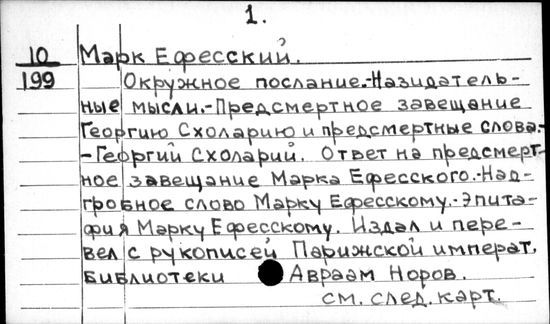 1.
10 Марк Ефесский.
199 Окружное послание.-Назидатель-
ные мысли.-Предсмертное завещание
Георгию Схоларию и предсмертные слова.-
-Георгий Схоларий. Ответ на предсмерт-
ное завещание Марка Ефесского.-Над-
гробное слово Марку Ефесскому.-Эпита-
фия Марку Ефесскому. Издал и пере-
вел с рукописей Парижской императ.
библиотеки Авраам Норов.
см. след. карт.